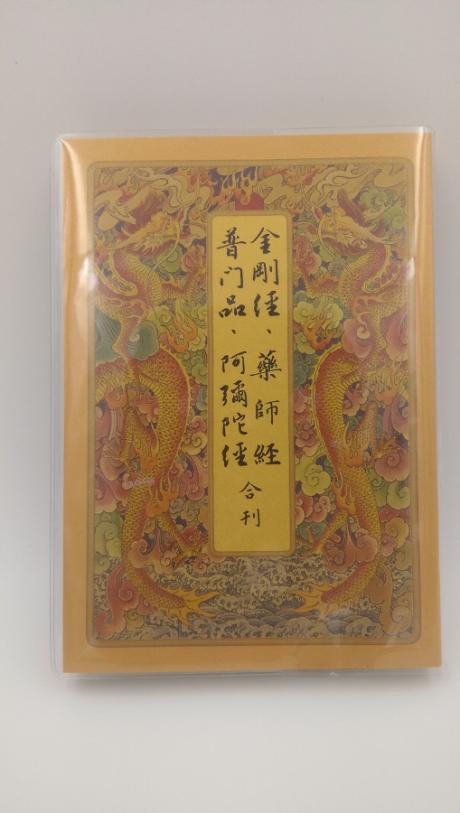 金剛經、藥師經
普门品、阿彌陀經
合刊